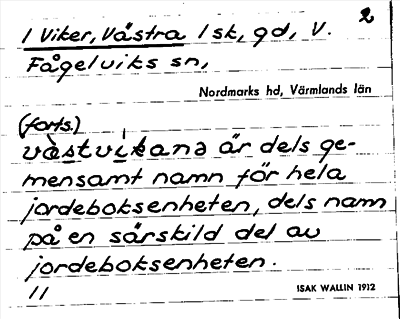 2
1 Viker, Västra 1 sk, gd, V.
Fågelviks sn,
Nordmarks hd, Värmlands län
(forts.)
vàstvikana är dels ge-
mensamt namn för hela
jordeboksenheten, dels namn
på en särskild del av
jordeboksenheten.
11
ISAK WALLIN 1912